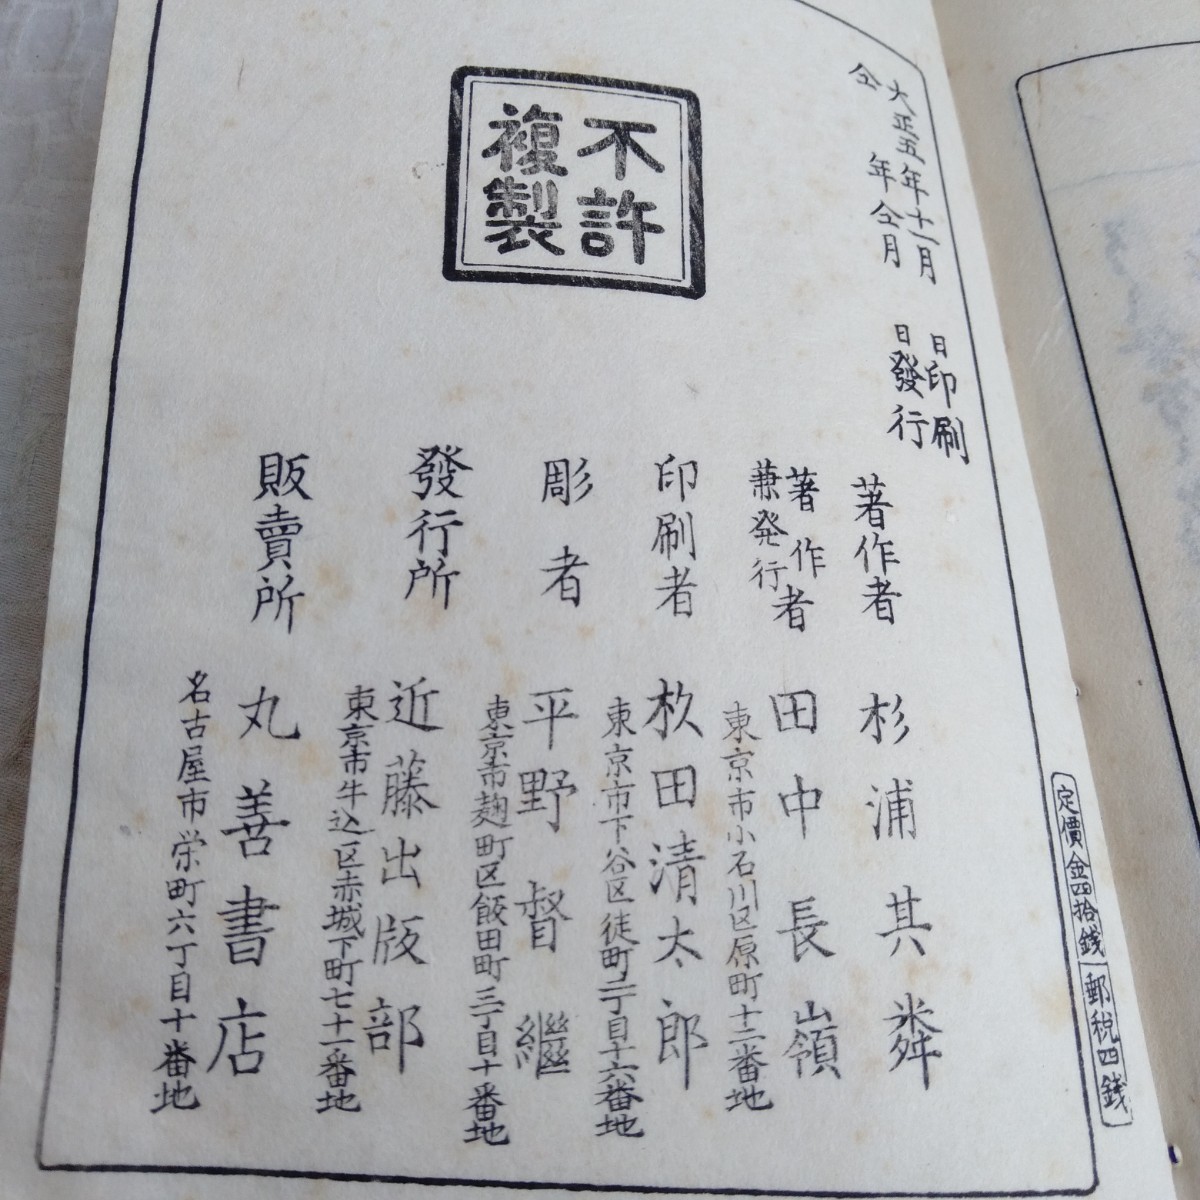 大正五年十一月　日印刷
仝　年仝月　日發行
不許
複製
定價金四拾銭
郵税四銭
著作者　杉浦其粦
著作者
兼発行　田中長嶺
東京市小石川区原町十二番地
印刷者　杦田清太郎
東京市下谷区徒町二丁目十六番地
彫者　平野督繼
東京市麹町区飯田町三丁目十番地
發行所　近藤出版部
東京市牛込区赤城下町七十一番地
販賣所　丸善書店
名古屋市栄町六丁目十番地